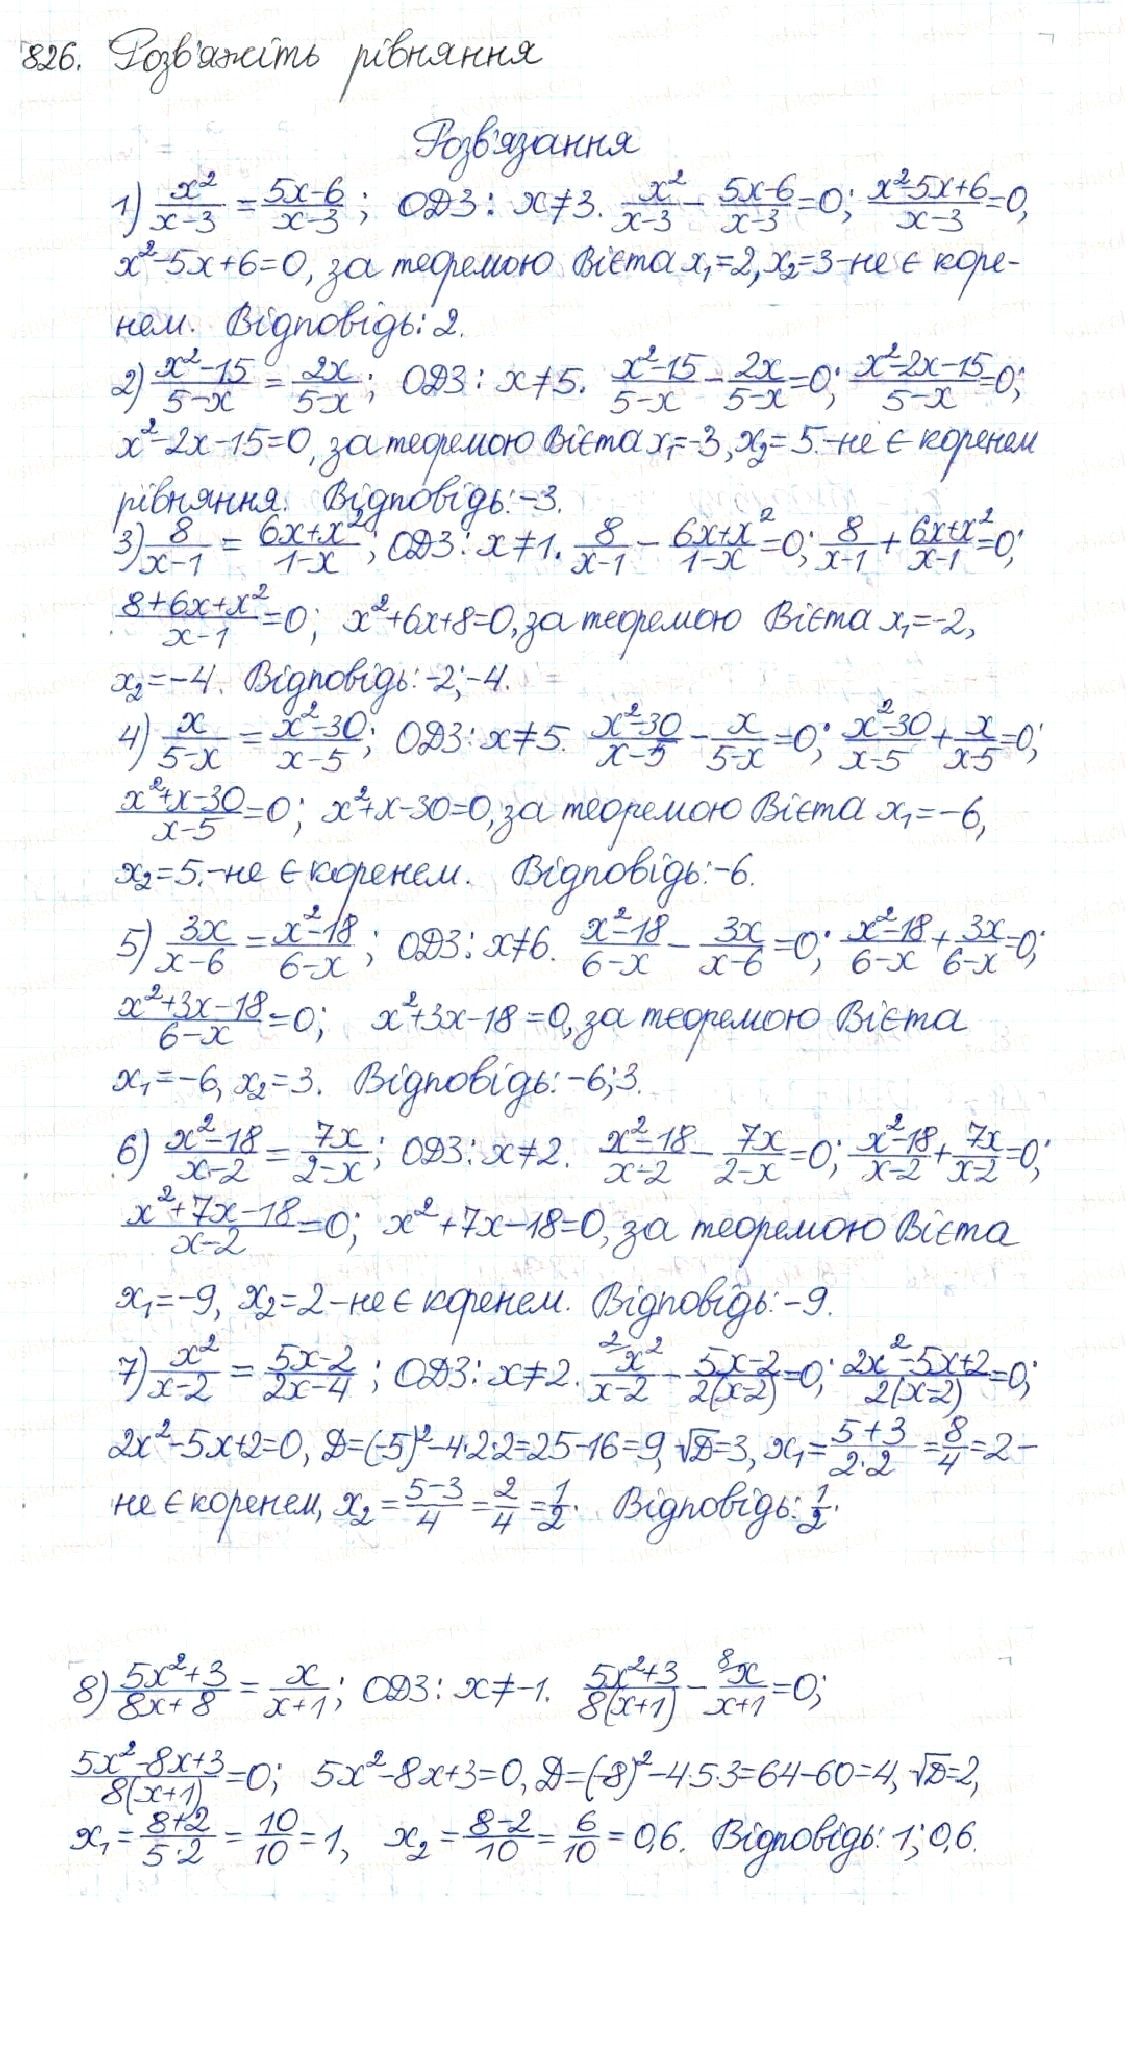 826. Розв'яжіть рівняння
Розв'язання
1) x²/(x-3) = (5x-6)/(x-3); ОДЗ: x≠3. x²/(x-3) - (5x-6)/(x-3) = 0; (x²-5x+6)/(x-3) = 0,
x²-5x+6=0, за теоремою Вієта x₁=2, x₂=3-не є коре-
нем. Відповідь: 2.
2) (x²-15)/(5-x) = 2x/(5-x); ОДЗ: x≠5. (x²-15)/(5-x) - 2x/(5-x) = 0; (x²-2x-15)/(5-x) = 0;
x²-2x-15=0, за теоремою Вієта x₁=-3, x₂=5.-не є коренем
рівняння. Відповідь: -3.
3) 8/(x-1) = (6x+x²)/(1-x); ОДЗ: x≠1. 8/(x-1) - (6x+x²)/(1-x) = 0; 8/(x-1) + (6x+x²)/(x-1) = 0;
(8+6x+x²)/(x-1) = 0; x²+6x+8=0, за теоремою Вієта x₁=-2,
x₂=-4. Відповідь: -2; -4.
4) x/(5-x) = (x²-30)/(x-5); ОДЗ: x≠5. (x²-30)/(x-5) - x/(5-x) = 0; (x²-30)/(x-5) + x/(x-5) = 0;
(x²+x-30)/(x-5) = 0; x²+x-30=0, за теоремою Вієта x₁=-6,
x₂=5.-не є коренем. Відповідь: -6.
5) 3x/(x-6) = (x²-18)/(6-x); ОДЗ: x≠6. (x²-18)/(6-x) - 3x/(x-6) = 0; (x²-18)/(6-x) + 3x/(6-x) = 0;
(x²+3x-18)/(6-x) = 0; x²+3x-18=0, за теоремою Вієта
x₁=-6, x₂=3. Відповідь: -6; 3.
6) (x²-18)/(x-2) = 7x/(2-x); ОДЗ: x≠2. (x²-18)/(x-2) - 7x/(2-x) = 0; (x²-18)/(x-2) + 7x/(x-2) = 0;
(x²+7x-18)/(x-2) = 0; x²+7x-18=0, за теоремою Вієта
x₁=-9, x₂=2-не є коренем. Відповідь: -9.
7) x²/(x-2) = (5x-2)/(2x-4); ОДЗ: x≠2. ²⁄x²/(x-2) - (5x-2)/(2(x-2)) = 0; (2x²-5x+2)/(2(x-2)) = 0;
2x²-5x+2=0, D=(-5)²-4·2·2=25-16=9, √D=3, x₁=(5+3)/(2·2)=8/4=2-
не є коренем, x₂=(5-3)/4=2/4=1/2. Відповідь: 1/2.
8) (5x²+3)/(8x+8) = x/(x+1); ОДЗ: x≠-1. (5x²+3)/(8(x+1)) - ⁸⁄x/(x+1) = 0;
(5x²-8x+3)/(8(x+1)) = 0; 5x²-8x+3=0, D=(-8)²-4·5·3=64-60=4, √D=2,
x₁=(8+2)/(5·2)=10/10=1, x₂=(8-2)/10=6/10=0,6. Відповідь: 1; 0,6.